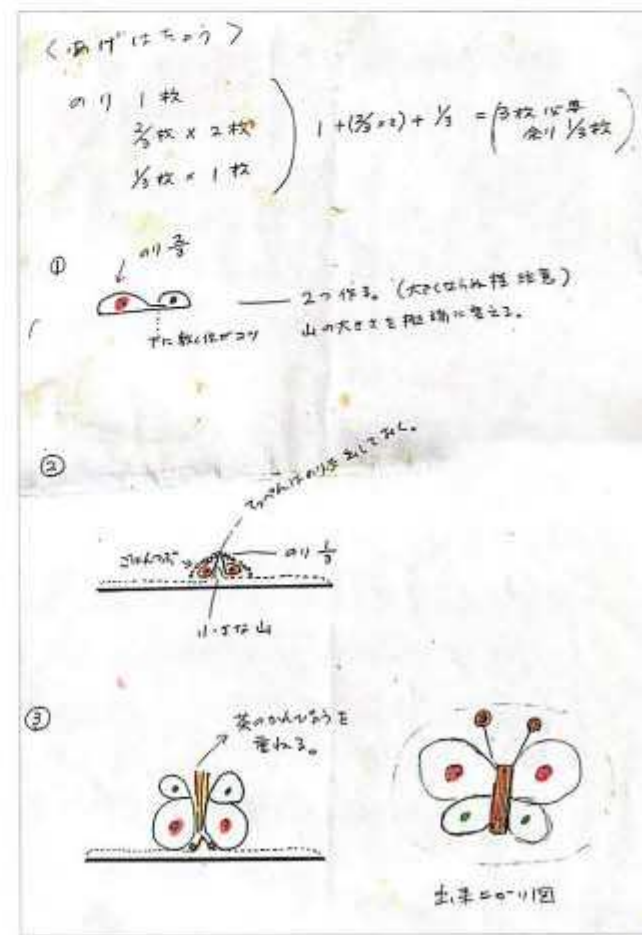 〈あげはちょう〉
のり 1枚
2/3枚 × 2枚
1/3枚 × 1枚
1+(2/3×2)+1/3 = (3枚必要
余り 1/3枚)
①
のり 2/3
下に敷く位がコツ
2つ作る。(大きくならぬ様注意)
山の大きさを極端に変える。
②
てっぺんはのりを出しておく。
ごはんつぶ
のり 1/3
小さな山
③
茶のかんぴょうを
重ねる。
出来上がり図